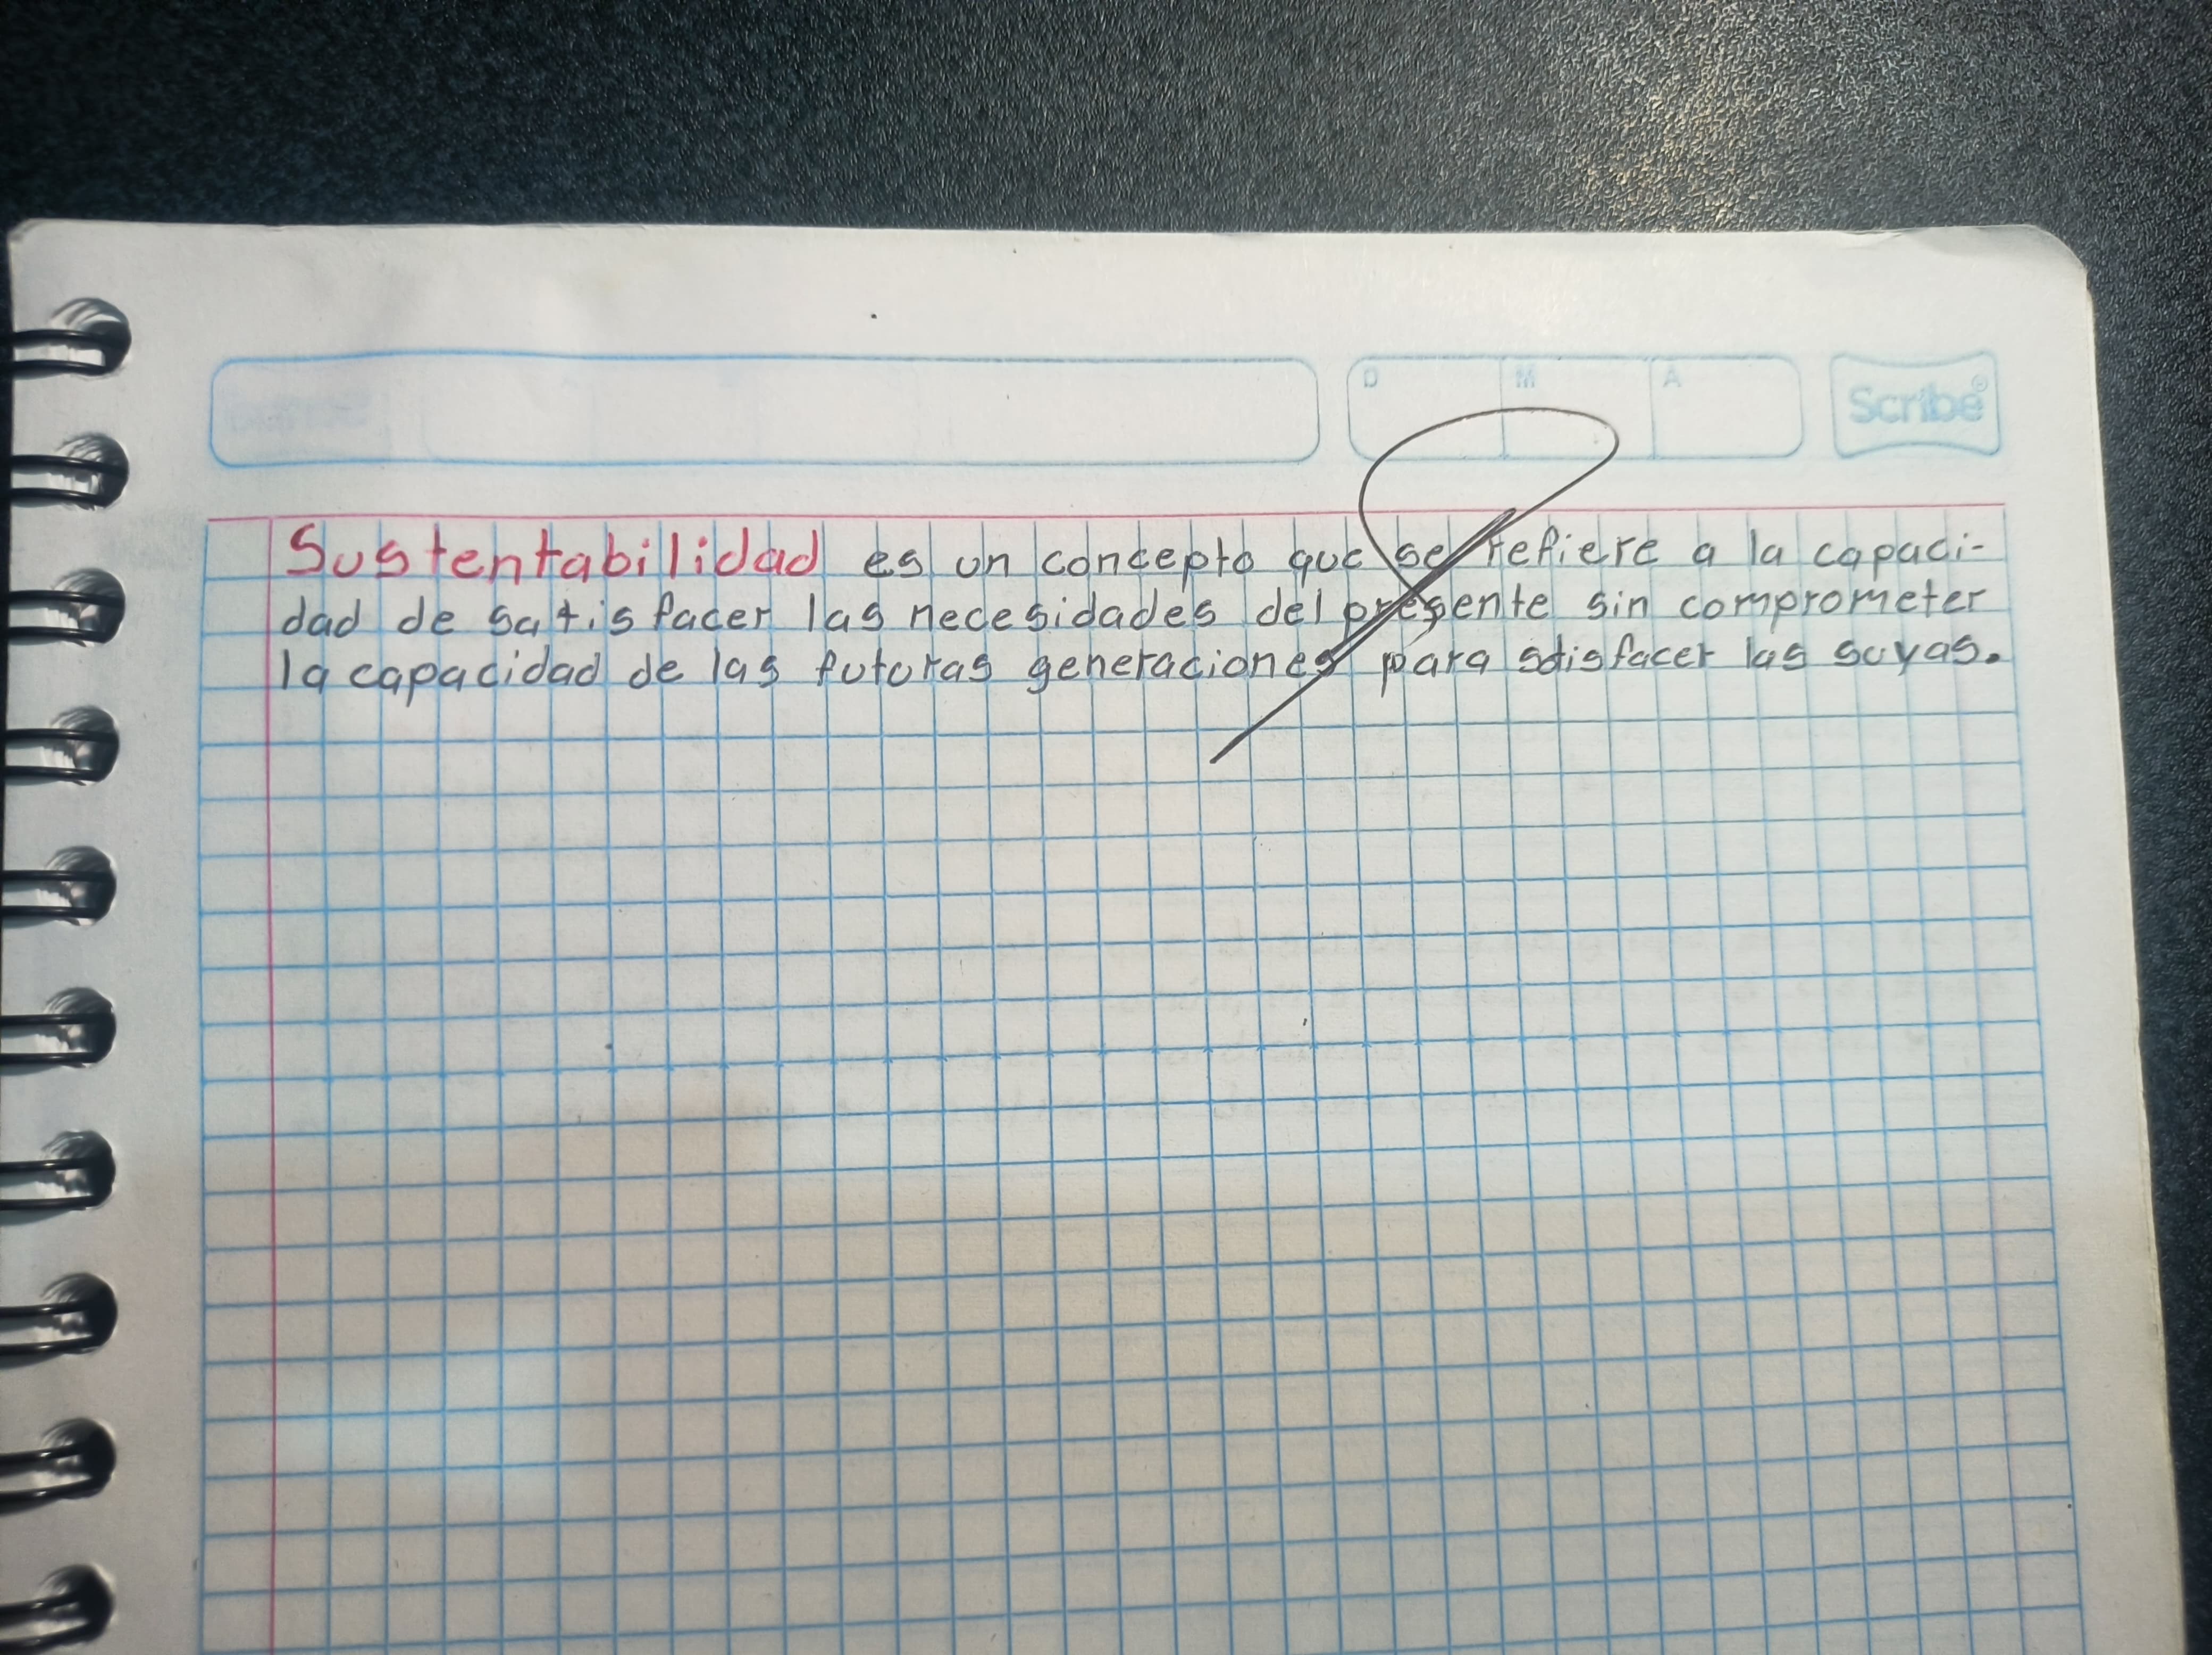 D M A Scribe®
Sustentabilidad es un concepto que se refiere a la capaci-
dad de satisfacer las necesidades del presente sin comprometer
la capacidad de las futuras generaciones para satisfacer las suyas.